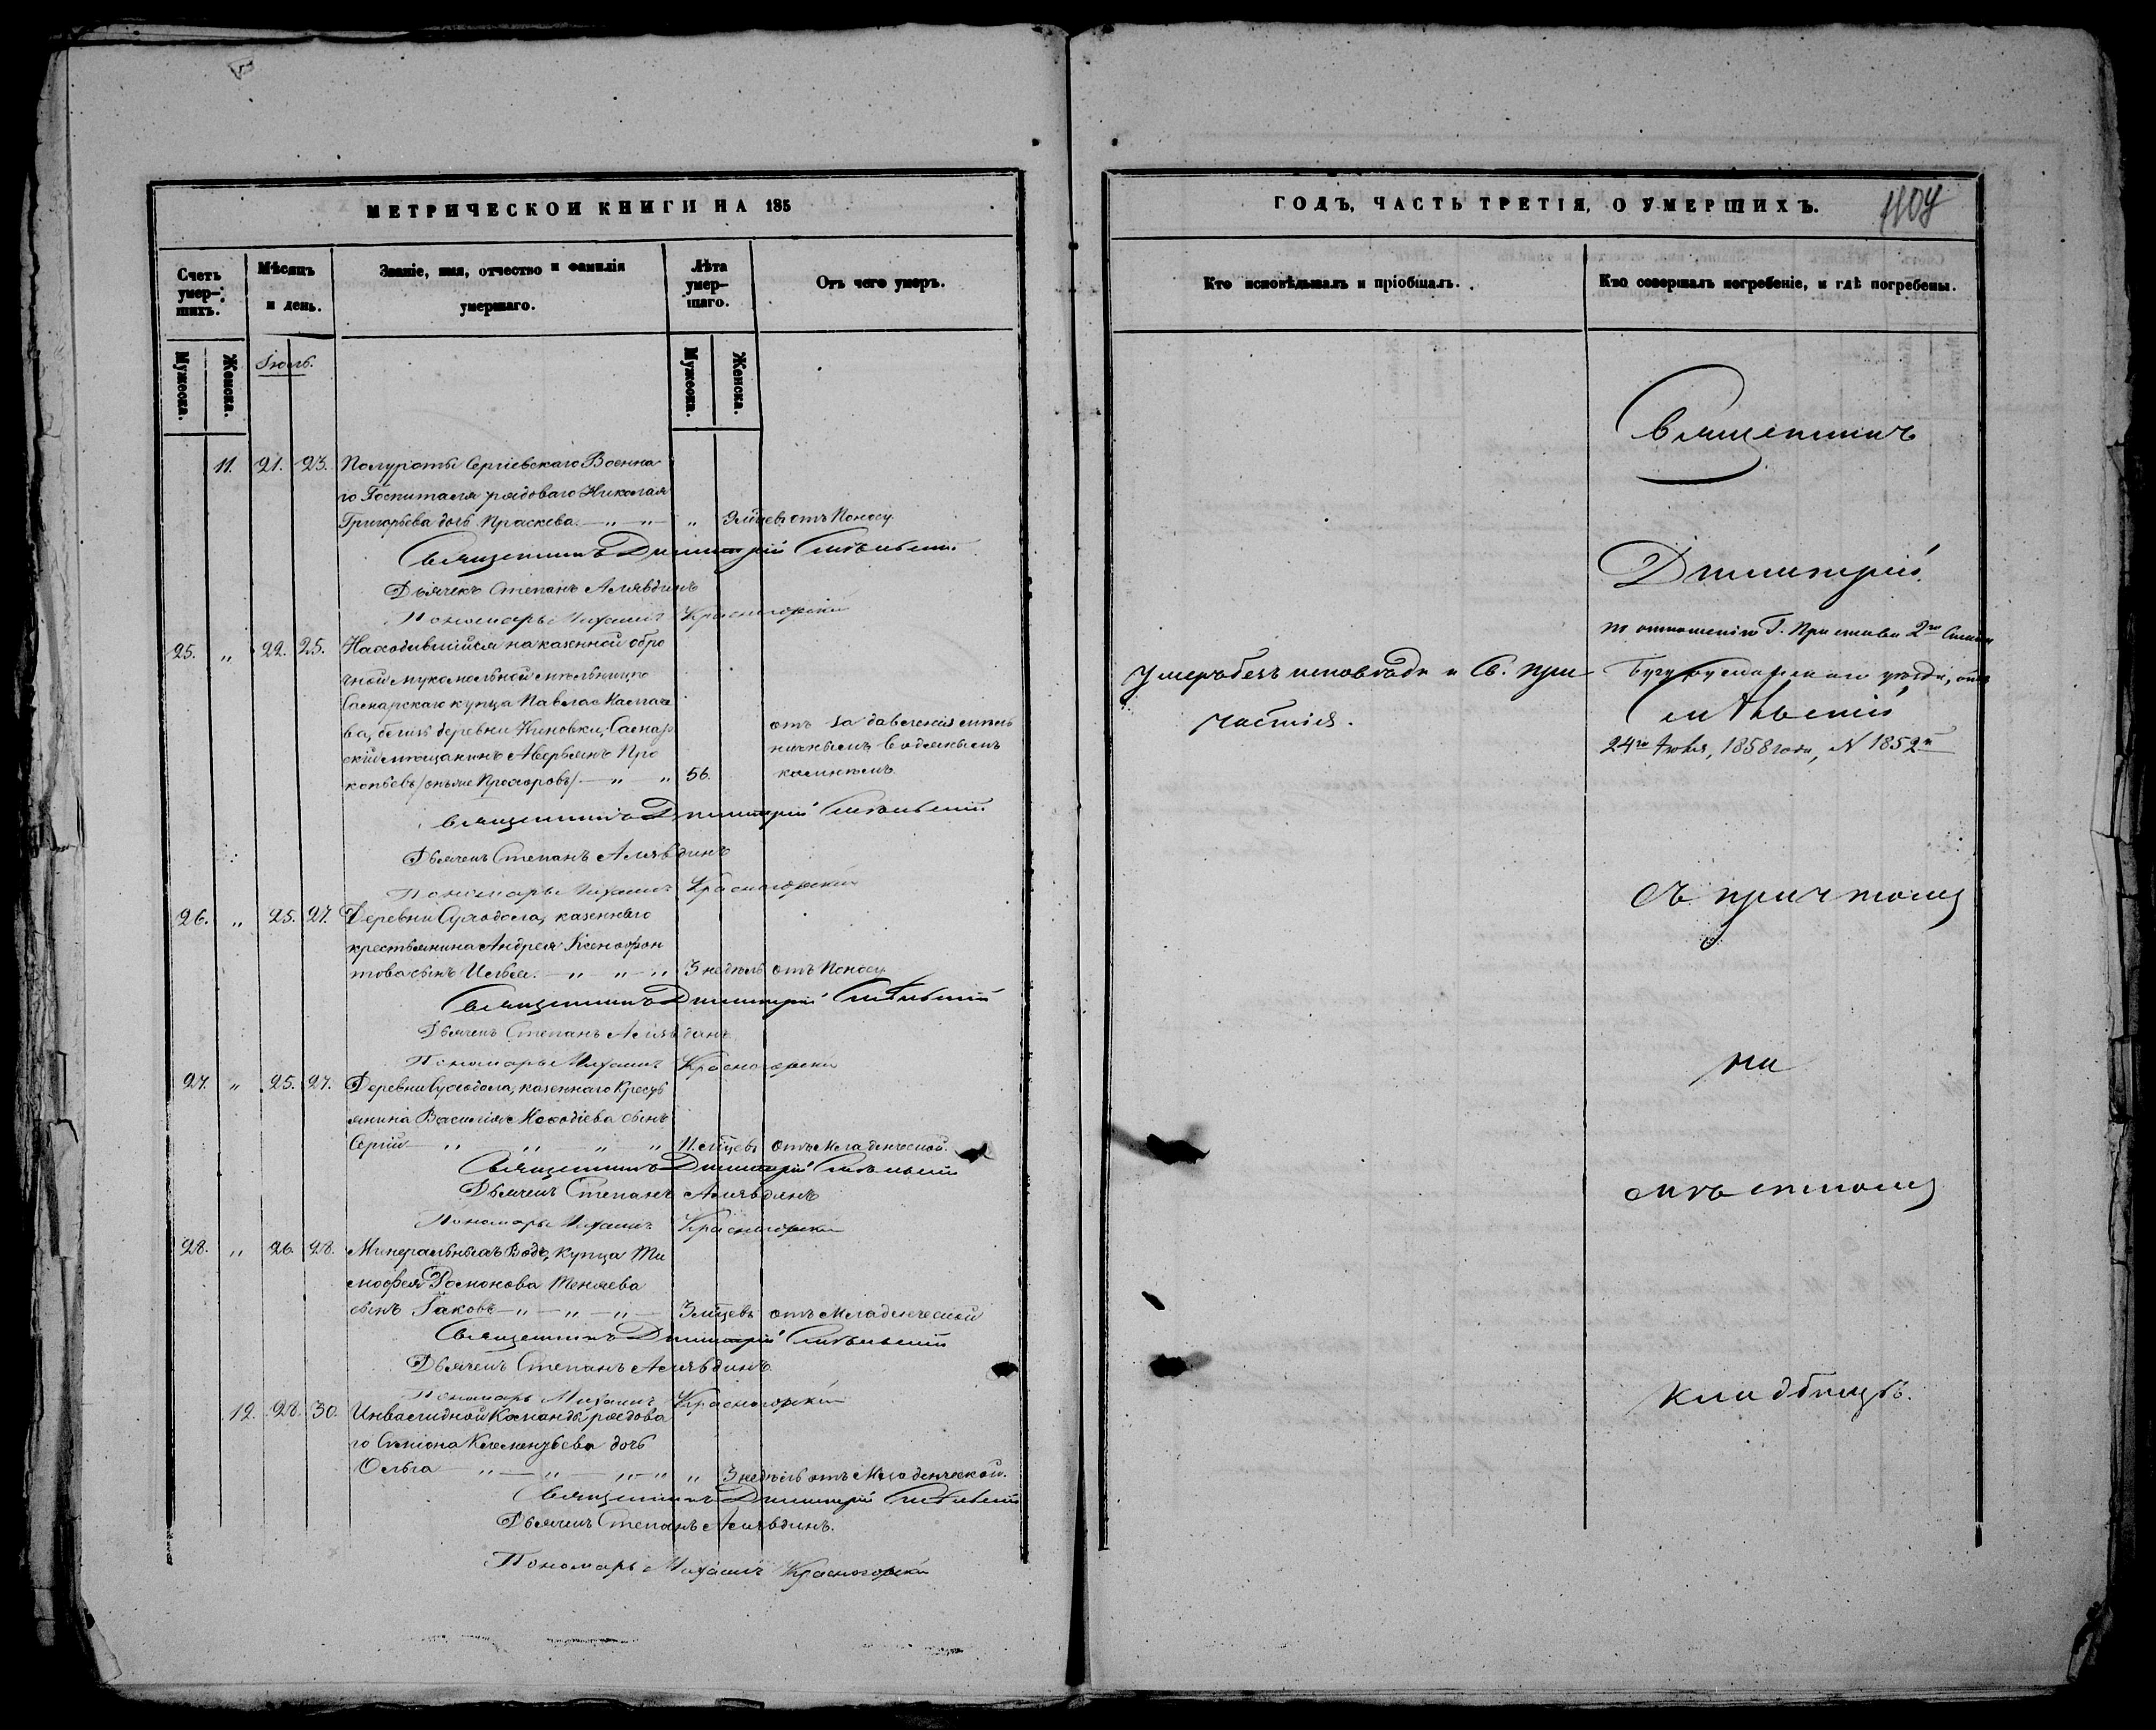 МЕТРИЧЕСКОЙ КНИГИ НА 185
Счетъ умер-шихъ.
Мѣсяцъ и день.
Званіе, имя, отчество и фамилія умершаго.
Лѣта умер-шаго.
Отъ чего умеръ.
Мужеска.
Женска.
Іюль.
Мужеска.
Женска.
11. 21. 23. Полуроты Сергіевскаго Военна
го Госпиталя рядоваго Николая
Григорьева дочь Праскева. — „ — „ — „ отъ Поносу
Священникъ Димитрій
Дьячекъ Степанъ Алявдинъ
Пономарь Михаилъ Красногорскій
25. „ 22. 25. Находившійся на казенной обро
чной мукомольной мельницѣ
Самарскаго купца Павла
ва, близь деревни Самар
скій мещанинъ Аверьянъ Про
копьевъ (онъ же Прохоровъ) — „ — „ 56.
отъ задавленія мель
ничнымъ водянымъ
Священникъ Димитрій
Дьячекъ Степанъ Алявдинъ
Пономарь Михаилъ Красногорскій
26. „ 25. 27. Деревни Суходола, казеннаго
крестьянина Андрея Ксенофон
това сынъ Илья. — „ — „ — „ 3 недѣль отъ Поносу
Священникъ Димитрій
Дьячекъ Степанъ Алявдинъ
Пономарь Михаилъ Красногорскій
27. „ 25. 27. Деревни Суходола, казеннаго Кресть
янина Василія Мокодіева сынъ
Сергій — „ — „ — „ — „ 11. мѣсцевъ отъ Младенческой.
Священникъ Димитрій
Дьячекъ Степанъ Алявдинъ
Пономарь Михаилъ Красногорскій
28. „ 26. 28. Минеральныхъ Водъ, купца Ти
мофея сынъ Іаковъ — „ — „ — „ — 3 мѣсцевъ отъ Младенческой
Священникъ Димитрій
Дьячекъ Степанъ Алявдинъ
Пономарь Михаилъ Красногорскій
12. 28. 30. Инвалидной Команды рядова
го Симіона Клементьева дочь
Ольга — „ — „ — „ — „ „ 3 недѣль отъ Младенческой.
Священникъ Димитрій
Дьячекъ Степанъ Алявдинъ.
Пономарь Михаилъ Красногорскій
ГОДЪ, ЧАСТЬ ТРЕТІЯ, О УМЕРШИХЪ.
Кто исповѣдывалъ и пріобщалъ.
Кто совершалъ погребеніе, и гдѣ погребены.
Умеръ безъ исповѣди и Св. При
частія.
Священникъ
Димитрій
по отношенію Г. Пристава 2го Стана
Бугурусланскаго уѣзда, отъ
24го Іюля, 1858 года, N 1852й
съ причтомъ
на
мѣстномъ
кладбищѣ.